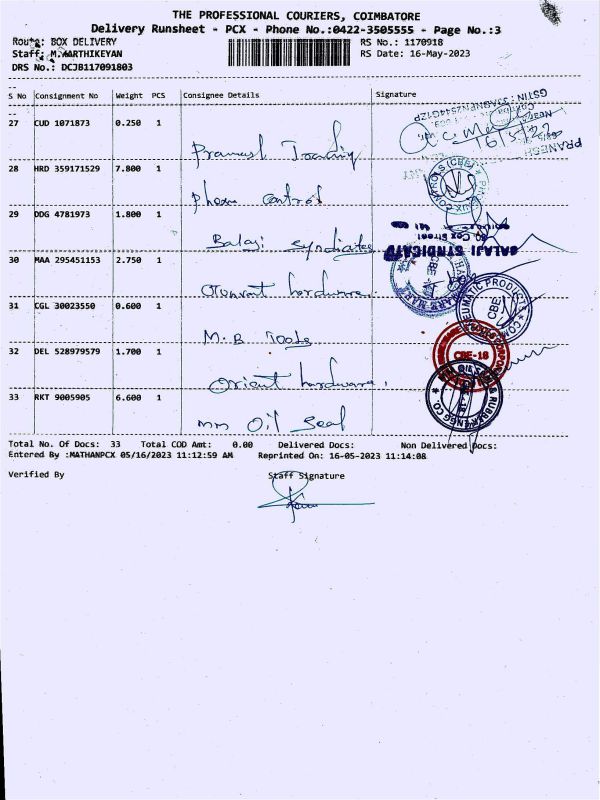 THE PROFESSIONAL COURIERS, COIMBATORE
Delivery Runsheet - PCX - Phone No.:0422-3505555 - Page No.:3
Route: BOX DELIVERY RS No.: 1170918
Staff: M.KARTHIKEYAN RS Date: 16-May-2023
DRS No.: DCJB117091803
S No Consignment No Weight PCS Consignee Details Signature
27 CUD 1071873 0.250 1
Trading
28 HRD 359171529 7.800 1
control
29 DDG 4781973 1.800 1
Balaji syndicate
30 MAA 295451153 2.750 1
hardware.
31 CGL 30023550 0.600 1
M.B Tools
32 DEL 528979579 1.700 1
orient hardware.
33 RKT 9005905 6.600 1
mm Oil Seal
GSTIN : 33
PRANESH
16/5/23
CONTROLS (CBE)
BALAJI SYNDICATE
Cox Street
CBE
PNEUMATIC PRODUCTS
CBE
CBE-18
& RUBBER
ENGG CO.
Total No. Of Docs: 33 Total COD Amt: 0.00 Delivered Docs: Non Delivered Docs:
Entered By :MATHANPCX 05/16/2023 11:12:59 AM Reprinted On: 16-05-2023 11:14:08
Verified By Staff Signature